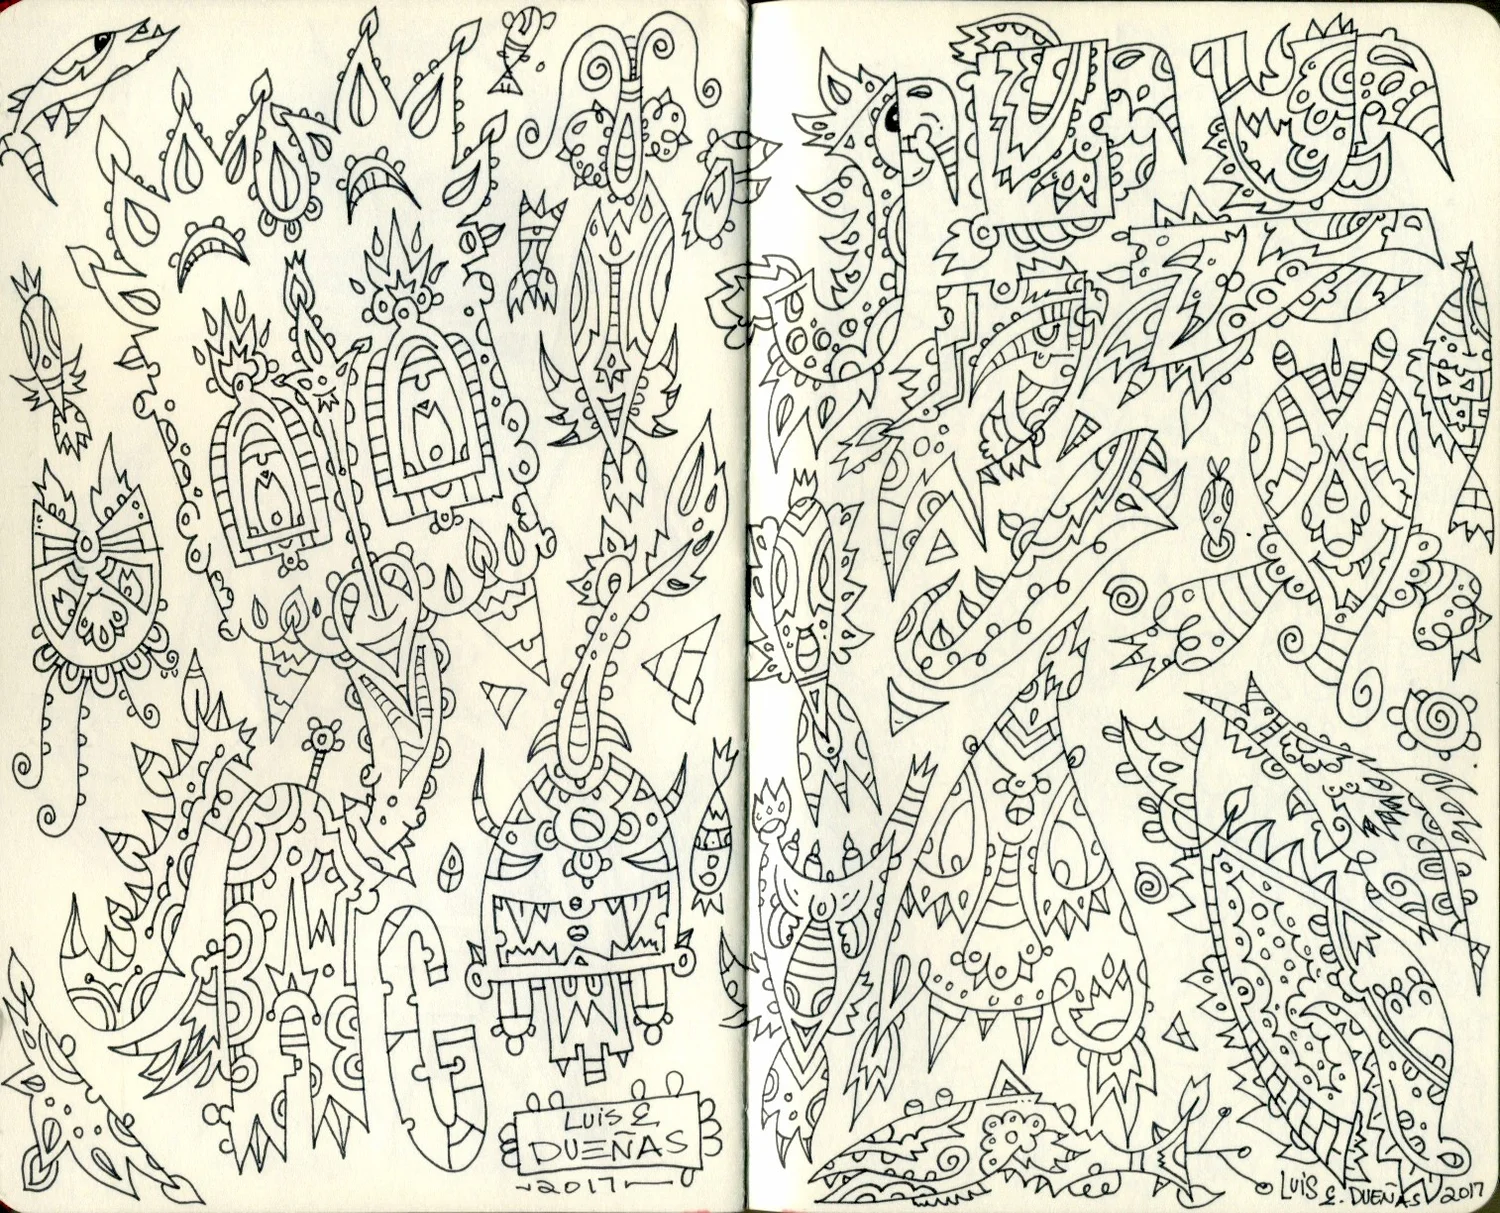 LUIS E
DUEÑAS
~2017~
LUIS E. DUEÑAS 2017